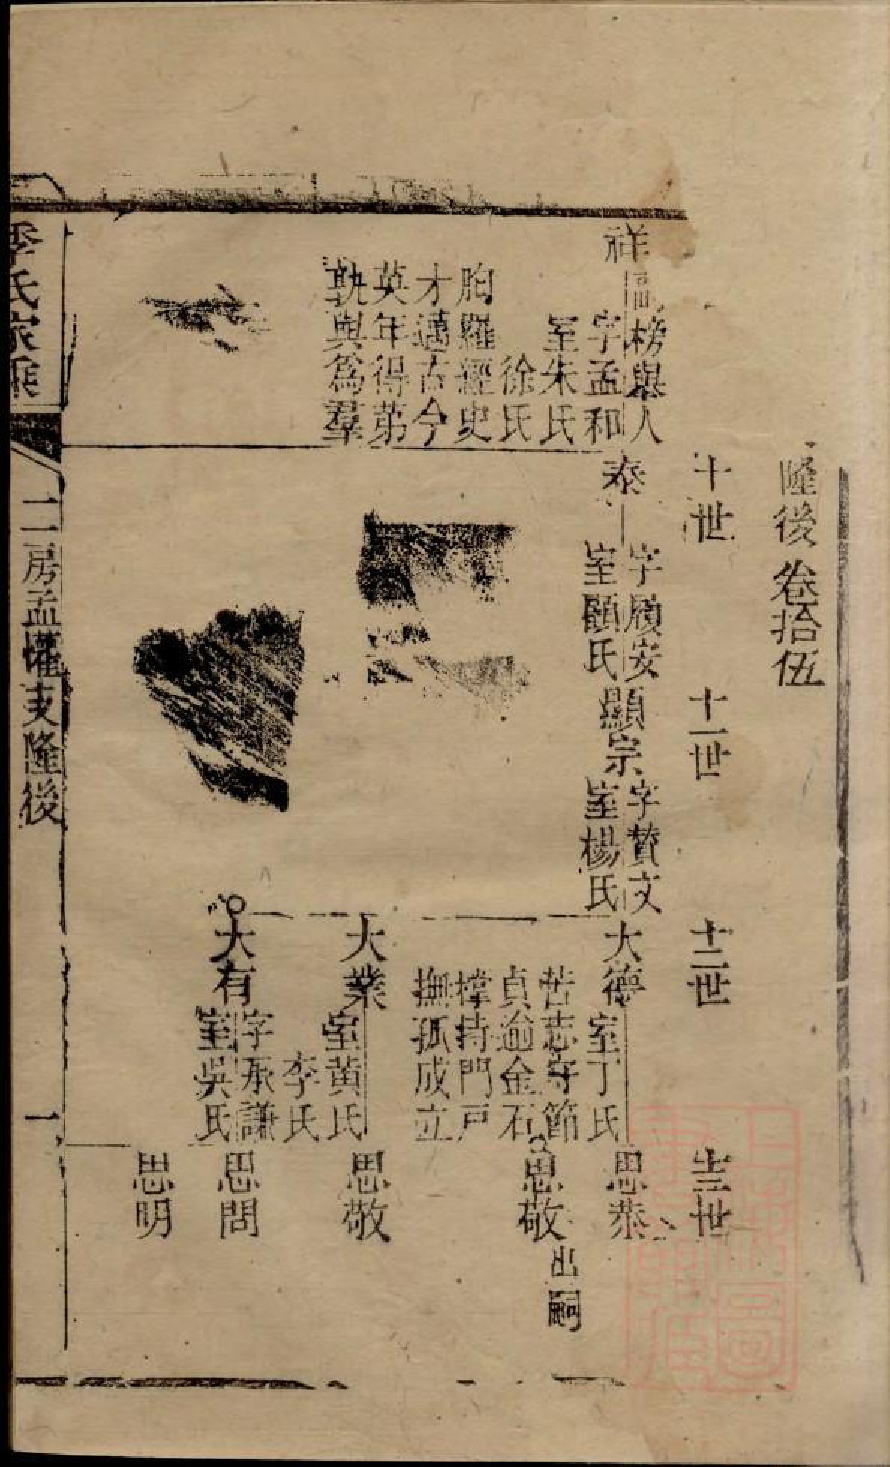 隆後 卷拾伍
十世
十一世
十二世
十三世
祥
榜舉人
字孟和
室朱氏
徐氏
胸羅經史
才邁古今
英年得第
孰與為羣
泰
字履安
室顧氏
顯宗
字贊文
室楊氏
大德
室丁氏
苦志守節
貞逾金石
撐持門戸
撫孤成立
大業
室黄氏
李氏
大有
字承謙
室吳氏
思恭
思敬
出嗣
思敬
思問
思明
季氏家乘
二房孟權支隆後
一